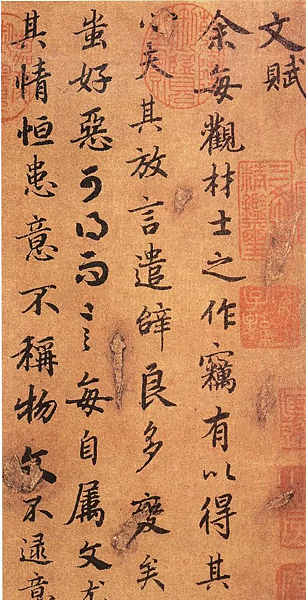 文賦
余每觀材士之作竊有以得其
心夫其放言遣辭良多變矣
蚩好惡可得而言每自屬文尤
其情恒患意不稱物文不逮意
三希堂精鑑璽
宜子孫